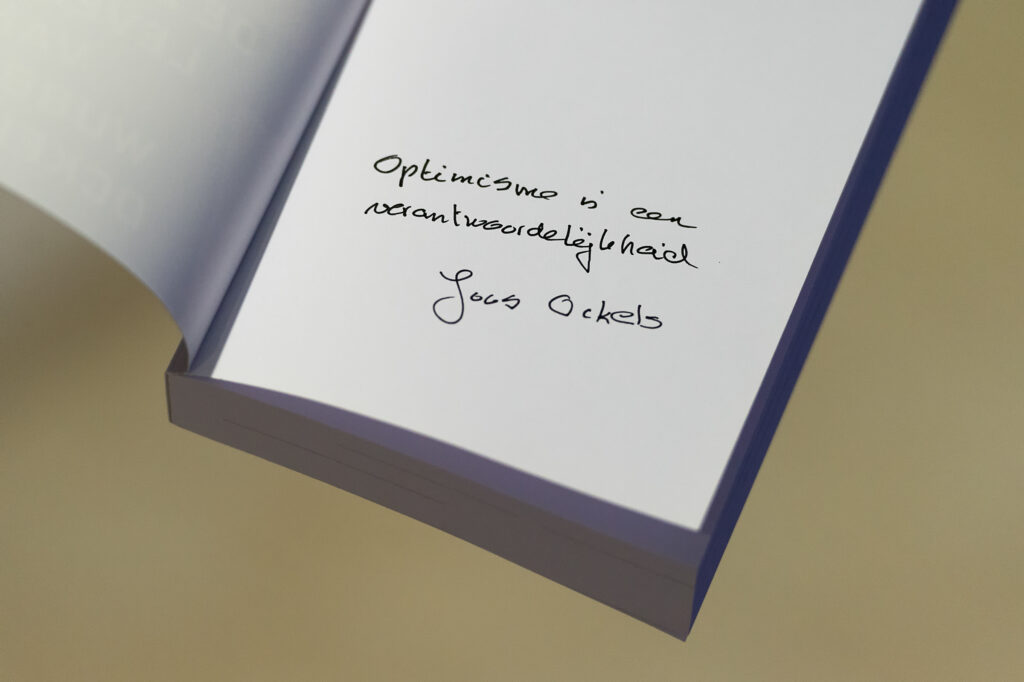 Optimisme is een
verantwoordelijkheid
Joos Ockels